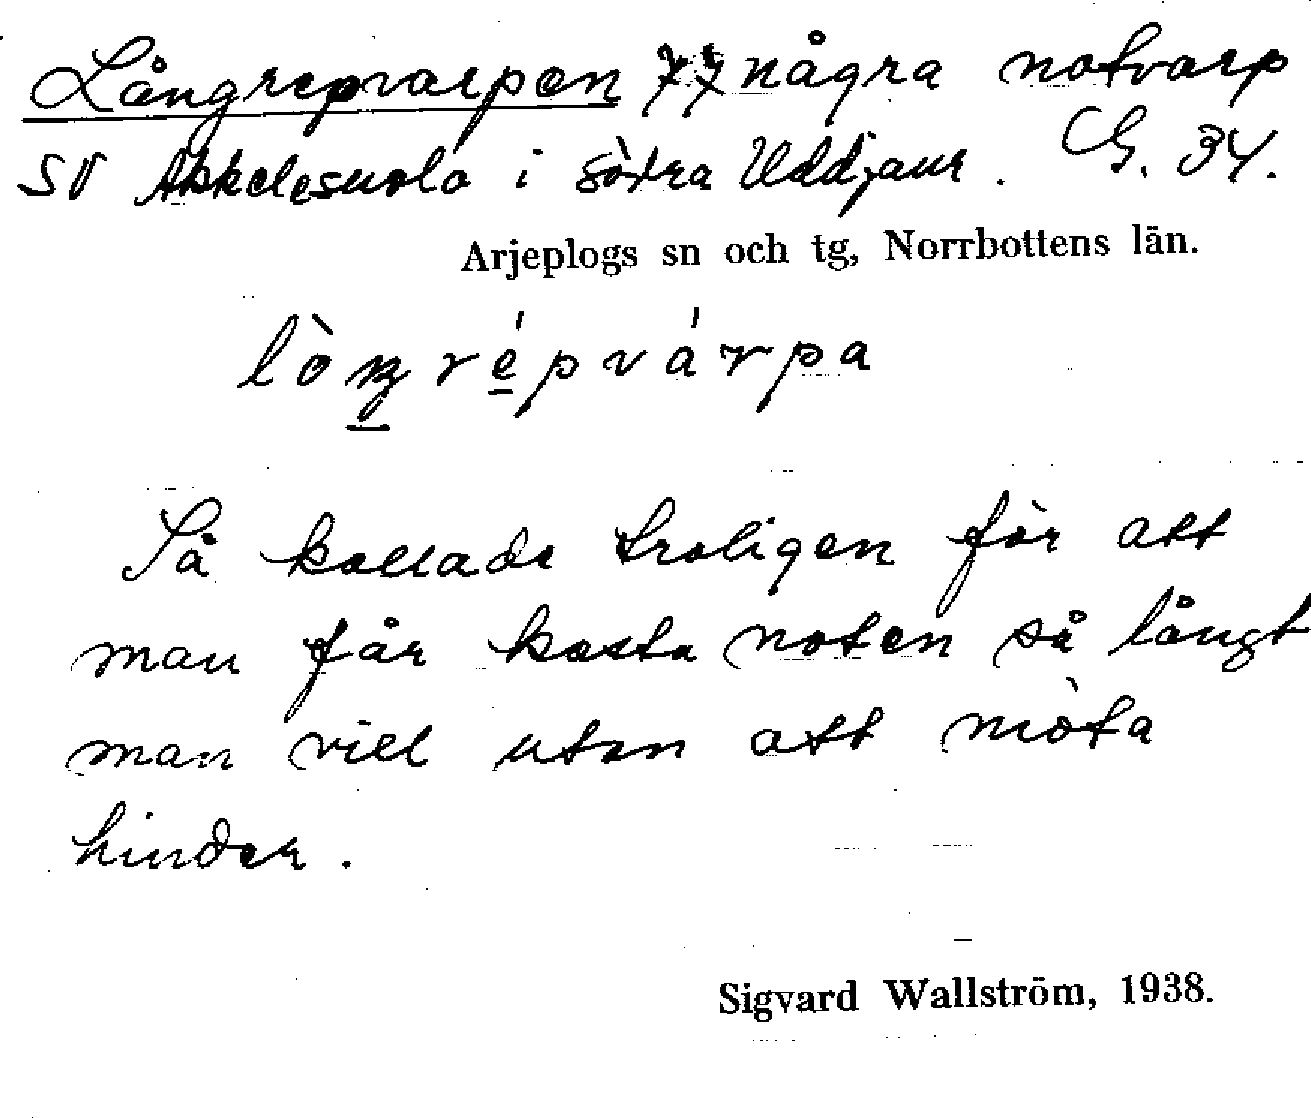 Långrepvarpen 77 några notvarp
SV Akkelesuolo i södra Uddjaur. G. 34.
Arjeplogs sn och tg, Norrbottens län.
lòŋrépvárpa
Så kallade troligen för att
man får kasta noten så långt
man vill utan att möta
hinder.
Sigvard Wallström, 1938.